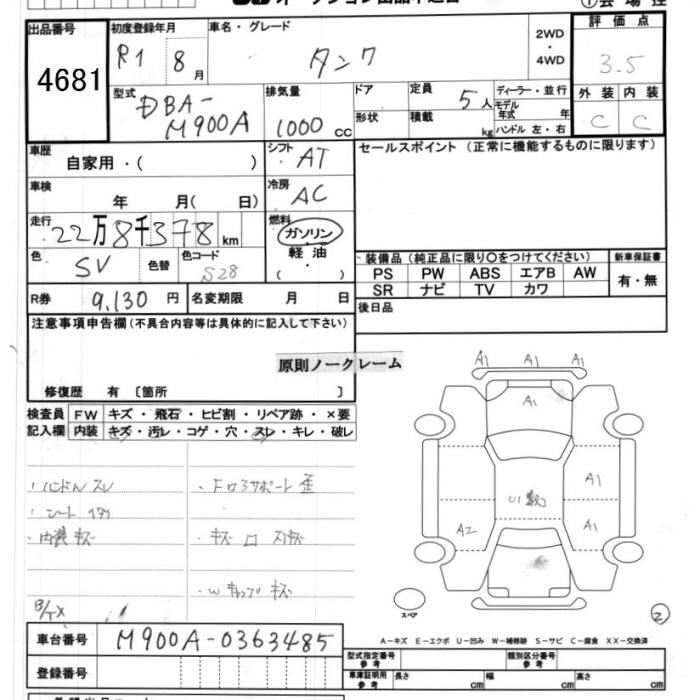 出品番号 初度登録年月 車名・グレード 2WD・4WD 評価点
4681 R1 8月 タンク 3.5
型式 DBA-M900A 排気量 1000 cc
ドア 形状 定員 5人 積載 kg
ディーラー・並行 モデル年式 年 ハンドル 左・右
外装 内装
C C
車歴 自家用・( ) シフト AT
セールスポイント (正常に機能するものに限ります)
車検 年 月( 日) 冷房 AC
走行 22万8千378 km 燃料 ガソリン 軽油 ( )
色 SV 色替 色コード S28
装備品 (純正品に限り○をつけてください) 新車保証書
PS PW ABS エアB AW 有・無
SR ナビ TV カワ
R券 9,130円 名変期限 月 日
後日品
注意事項申告欄(不具合内容等は具体的に記入して下さい)
原則ノークレーム
修復歴 有 〔箇所 〕
検査員 FW キズ・飛石・ヒビ割・リペア跡・×要
記入欄 内装 キズ・汚レ・コゲ・穴・スレ・キレ・破レ
A1 A1 A1
A1
・ハンドル スレ ・Fロアサポート歪
A1
・シート
U1
・内装キズ
A2 A1
スペア
2
A-キズ E-エクボ U-凹み W-補修跡 S-サビ C-腐食 XX-交換済
車台番号 M900A-0363485
型式指定番号 参考 類別区分番号 参考
登録番号
車庫証明用 参考 長さ cm 幅 cm 高さ cm